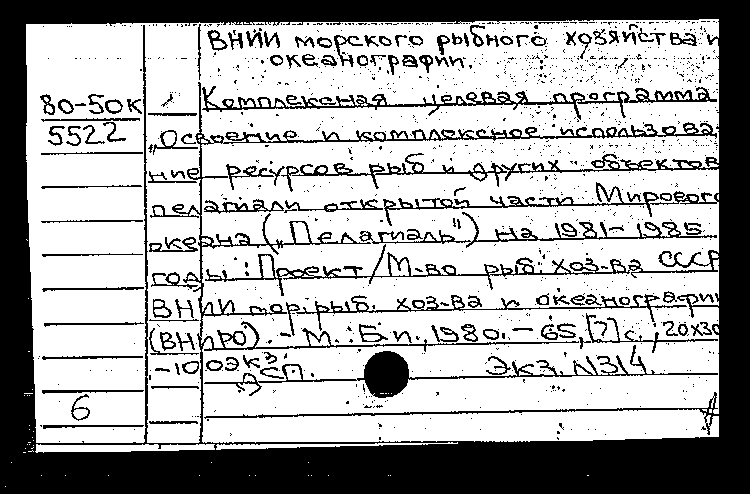 ВНИИ морского рыбного хозяйства и
океанографии.
80-50к Комплексная целевая программа
5522 „Освоение и комплексное использова-
ние ресурсов рыб и других объектов
пелагиали открытой части Мирового
океана („Пелагиаль") на 1981-1985
годы: Проект/М-во рыб. хоз-ва СССР
ВНИИ мор. рыб. хоз-ва и океанографии
(ВНИРО). - М.: Б.и., 1980. - 65, [7] с.; 20х30
-100экз.
ДСП. Экз. N314.
6